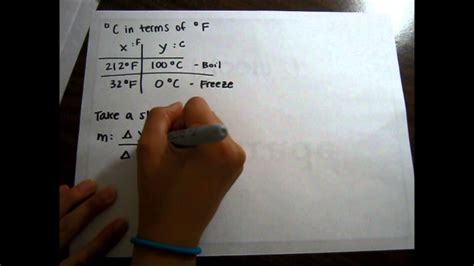 °C in terms of °F
x:F y:C
212°F 100°C - Boil
32°F 0°C - Freeze
Take a
m: Δ
Δ